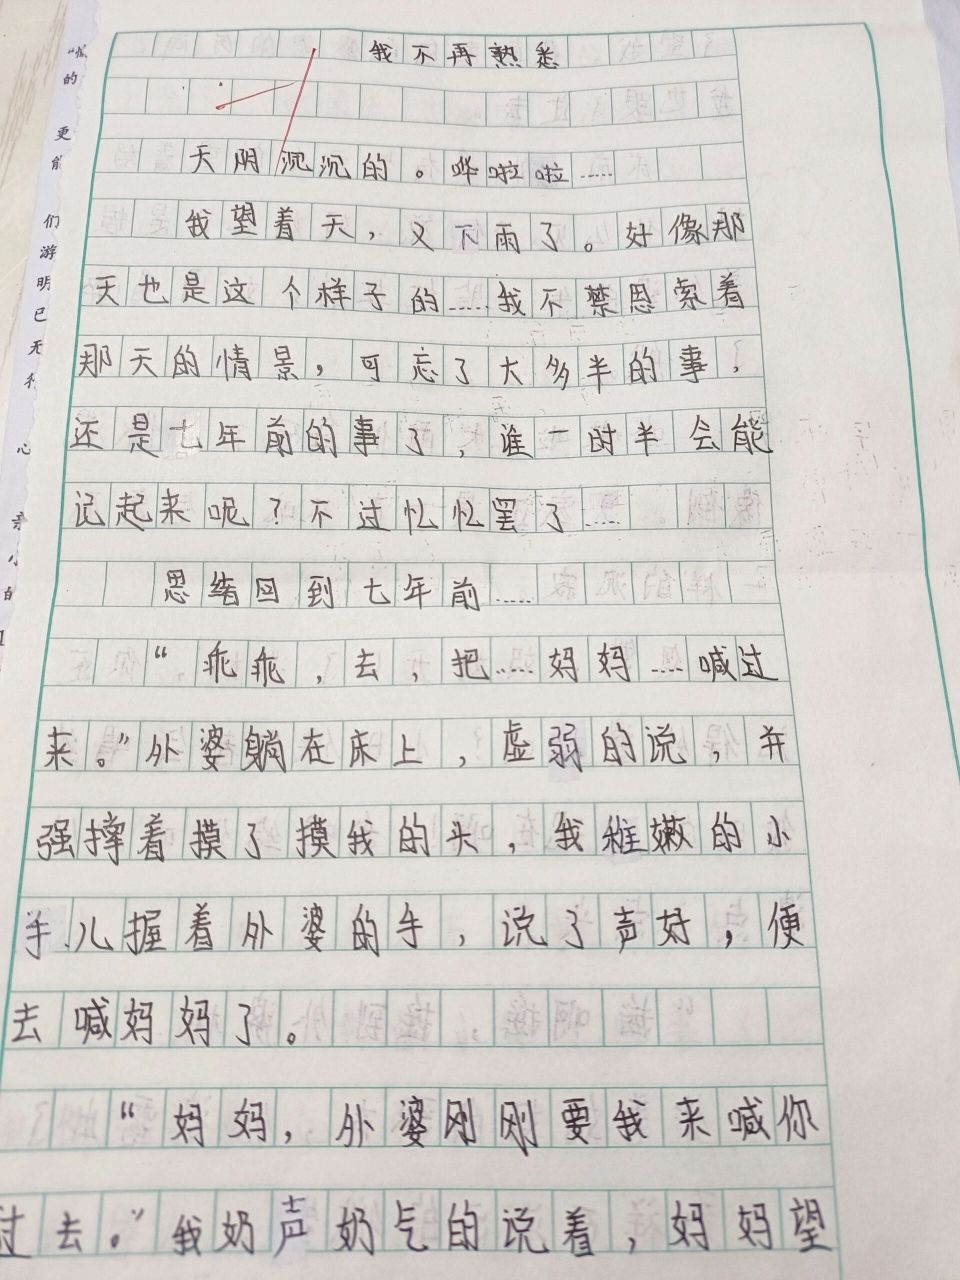 我不再熟悉
天阴沉沉的。哗啦啦……
我望着天，又下雨了。好像那
天也是这个样子的……我不禁思索着
那天的情景，可忘了大多半的事，
还是七年前的事了，谁一时半会能
记起来呢？不过忆忆罢了……
思绪回到七年前……
“乖乖，去，把……妈妈……喊过
来。”外婆躺在床上，虚弱的说，并
强撑着摸了摸我的头，我稚嫩的小
手儿握着外婆的手，说了声好，便
去喊妈妈了。
“妈妈，外婆刚刚要我来喊你
过去。”我奶声奶气的说着，妈妈望
的
更
能
们
游
明
已
无
心